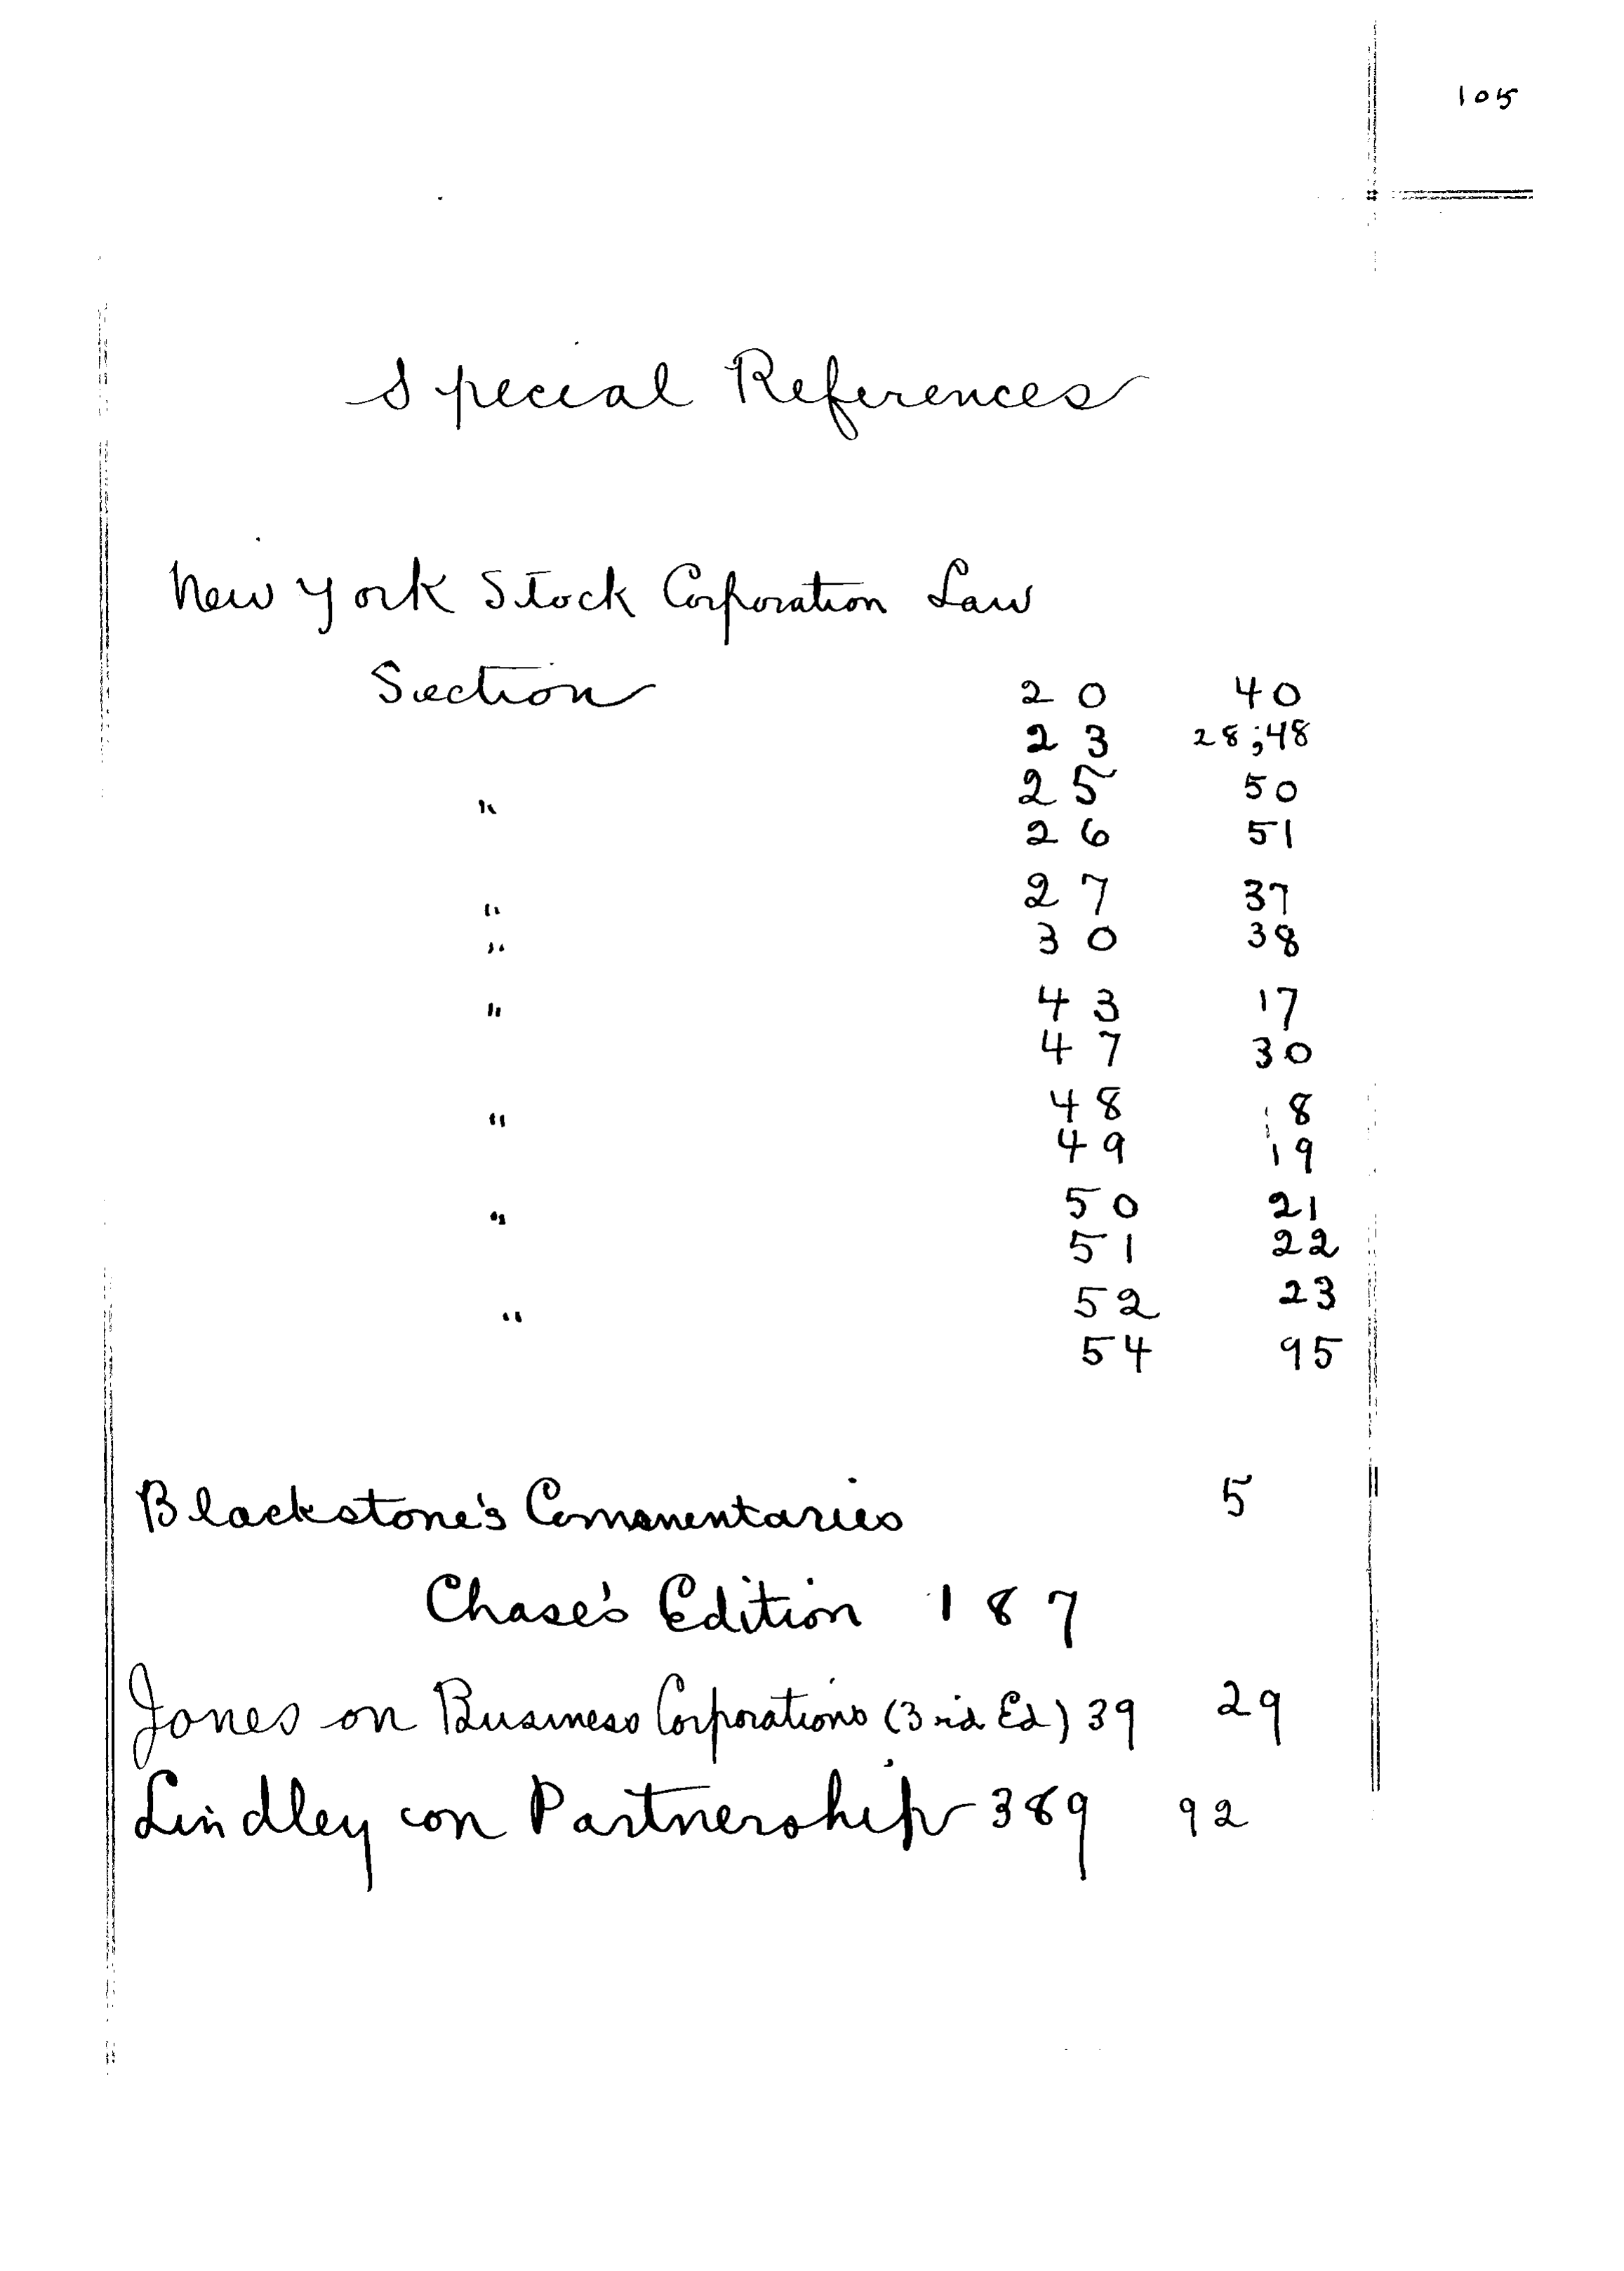 105
Special References
New York Stock Corporation Law
Section 20 40
23 28;48
" 25 50
26 51
" 27 37
" 30 38
" 43 17
47 30
" 48 8
49 19
" 50 21
51 22
" 52 23
54 95
Blackstone's Commentaries 5
Chase's Edition 187
Jones on Business Corporations (3rd Ed) 39 29
Lindley on Partnership 389 92